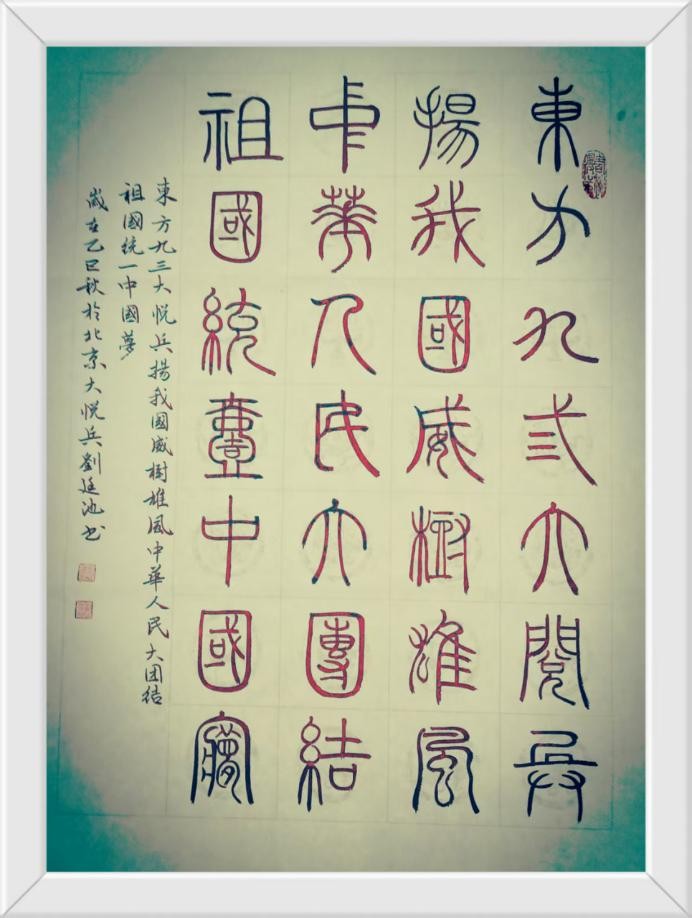 東方九弎大閱兵
揚我國威樹雄風
中華人民大團結
祖國統壹中國夢
東方九三大悦兵揚我國威樹雄風中華人民大团结
祖國统一中國夢
歲在乙巳秋於北京大悦兵劉廷池书